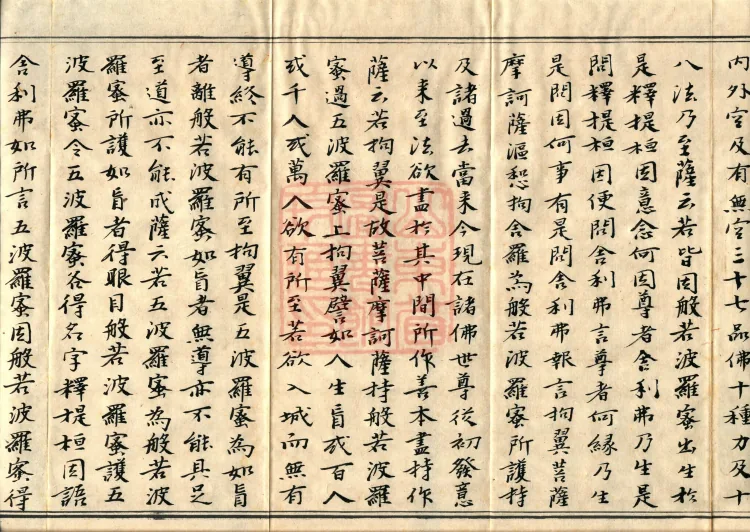 內外空及有無空三十七品佛十種力及十
八法乃至薩云若皆因般若波羅蜜出生於
是釋提桓因意念何因尊者舍利弗乃生是
問釋提桓因便問舍利弗言尊者何緣乃生
是問因何事有是問舍利弗報言拘翼菩薩
摩訶薩漚惒拘舍羅為般若波羅蜜所護持
及諸過去當來今現在諸佛世尊從初發意
以來至法欲盡於其中間所作善本盡持作
薩云若拘翼是故菩薩摩訶薩持般若波羅
蜜過五波羅蜜上拘翼譬如人生盲或百人
或千人或萬人欲有所至若欲入城而無有
導終不能有所至拘翼是五波羅蜜為如盲
者離般若波羅蜜如盲者無導亦不能具足
至道亦不能成薩云若五波羅蜜為般若波
羅蜜所護如盲者得眼目般若波羅蜜護五
波羅蜜令五波羅蜜各得名字釋提桓因語
舍利弗如所言五波羅蜜因般若波羅蜜得